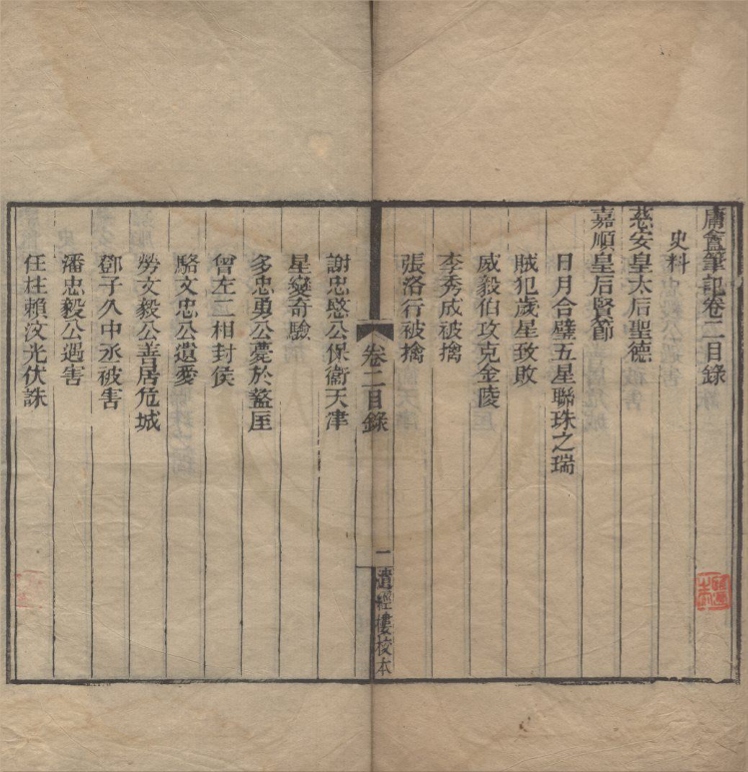 庸盦筆記卷二目錄
史料
慈安皇太后聖德
嘉順皇后賢節
日月合璧五星聯珠之瑞
賊犯歲星致敗
威毅伯攻克金陵
李秀成被擒
張洛行被擒
卷二目錄
一
遺經樓校本
謝忠愍公保衞天津
星變奇驗
多忠勇公薨於盩厔
曾左二相封侯
駱文忠公遺愛
勞文毅公善居危城
鄧子久中丞被害
潘忠毅公遇害
任柱賴汶光伏誅